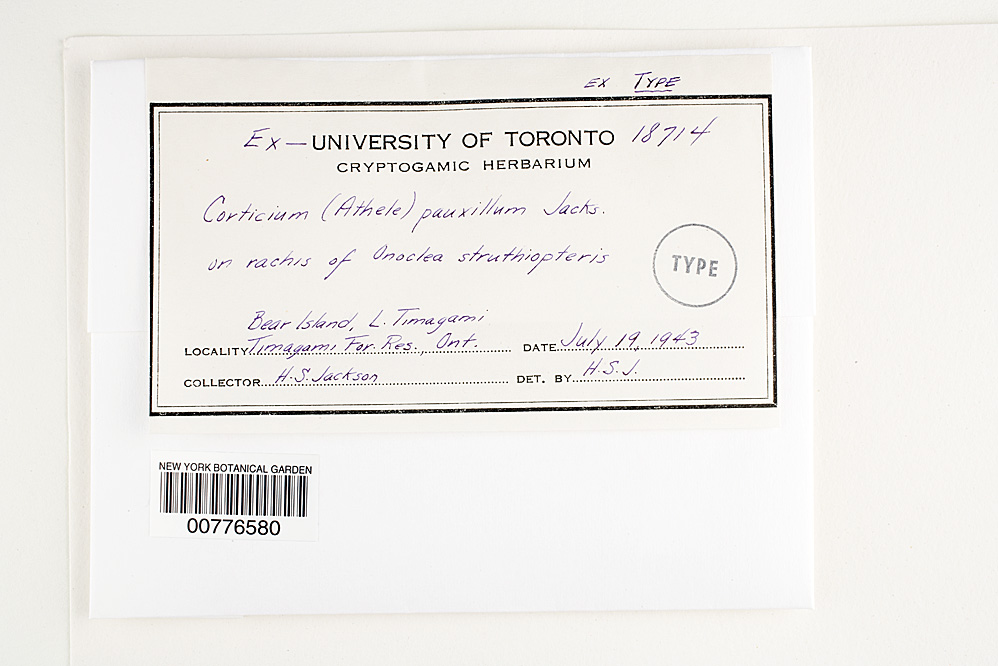 EX TYPE
Ex— UNIVERSITY OF TORONTO 18714
CRYPTOGAMIC HERBARIUM
Corticium (Athele) pauxillum Jacks.
on rachis of Onoclea struthiopteris
TYPE
Bear Island, L. Timagami
LOCALITY Timagami For. Res., Ont. DATE July 19, 1943
COLLECTOR H.S. Jackson DET. BY H.S.J.
NEW YORK BOTANICAL GARDEN
00776580